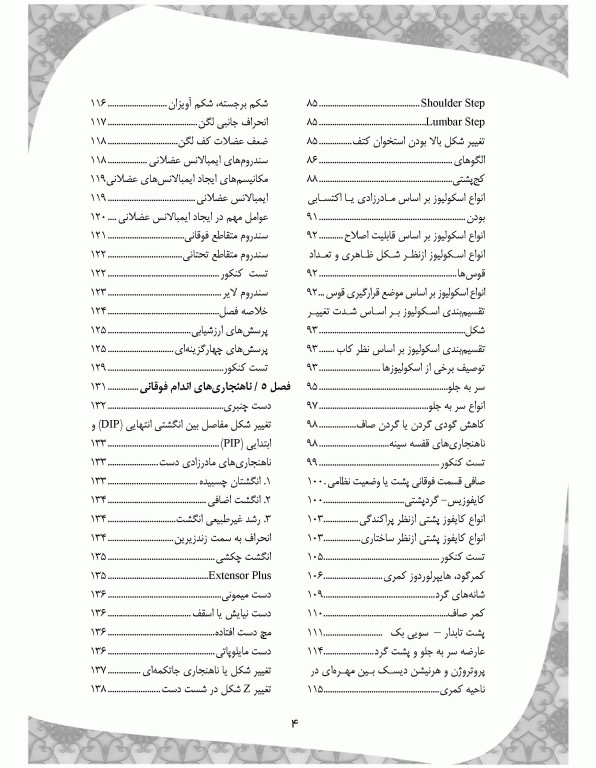 Shoulder Step ۸۵
Lumbar Step ۸۵
تغییر شکل بالا بودن استخوان کتف ۸۵
الگوهای ۸۶
کج‌پشتی ۸۸
انواع اسکولیوز بر اساس مـادرزادی یـا اکتسـابی
بودن ۹۱
انواع اسکولیوز بر اساس قابلیت اصلاح ۹۲
انواع اسـکولیوز ازنظـر شـکل ظـاهری و تعـداد
قوس‌ها ۹۲
انواع اسکولیوز بر اساس موضع قرارگیری قوس ۹۲
تقسیم‌بندی اسـکولیوز بـر اسـاس شـدت تغییـر
شکل ۹۳
تقسیم‌بندی اسکولیوز بر اساس نظر کاب ۹۳
توصیف برخی از اسکولیوزها ۹۳
سر به جلو ۹۵
انواع سر به جلو ۹۷
کاهش گودی گردن یا گردن صاف ۹۸
ناهنجاری‌های قفسه سینه ۹۸
تست کنکور ۹۹
صافی قسمت فوقانی پشت یا وضعیت نظامی ۱۰۰
کایفوزیس- گردپشتی ۱۰۰
انواع کایفوز پشتی ازنظر پراکندگی ۱۰۳
انواع کایفوز پشتی ازنظر ساختاری ۱۰۳
تست کنکور ۱۰۵
کمرگود، هایپرلوردوز کمری ۱۰۶
شانه‌های گرد ۱۰۹
کمر صاف ۱۱۰
پشت تابدار – سویی بک ۱۱۱
عارضه سر به جلو و پشت گرد ۱۱۴
پروتروژن و هرنیشن دیسـک بـین مهـره‌ای در
ناحیه کمری ۱۱۵
شکم برجسته، شکم آویزان ۱۱۶
انحراف جانبی لگن ۱۱۷
ضعف عضلات کف لگن ۱۱۸
سندروم‌های ایمبالانس عضلانی ۱۱۸
مکانیسم‌های ایجاد ایمبالانس‌های عضلانی ۱۱۹
ایمبالانس عضلانی ۱۱۹
عوامل مهم در ایجاد ایمبالانس عضلانی ۱۲۰
سندروم متقاطع فوقانی ۱۲۱
سندروم متقاطع تحتانی ۱۲۲
تست کنکور ۱۲۲
سندروم لایر ۱۲۳
خلاصه فصل ۱۲۴
پرسش‌های ارزشیابی ۱۲۵
پرسش‌های چهارگزینه‌ای ۱۲۵
تست کنکور ۱۲۹
فصل ۵ / ناهنجاری‌های اندام فوقانی ۱۳۱
دست چنبری ۱۳۲
تغییر شکل مفاصل بین انگشتی انتهایی (DIP) و
ابتدایی (PIP) ۱۳۳
ناهنجاری‌های مادرزادی دست ۱۳۳
۱. انگشتان چسبیده ۱۳۳
۲. انگشت اضافی ۱۳۴
۳. رشد غیرطبیعی انگشت ۱۳۴
انحراف به سمت زندزیرین ۱۳۴
انگشت چکشی ۱۳۵
Extensor Plus ۱۳۵
دست میمونی ۱۳۶
دست نیایش یا اسقف ۱۳۶
مچ دست افتاده ۱۳۶
دست مایلوپاتی ۱۳۶
تغییر شکل یا ناهنجاری جاتکمه‌ای ۱۳۷
تغییر Z شکل در شست دست ۱۳۸
۴